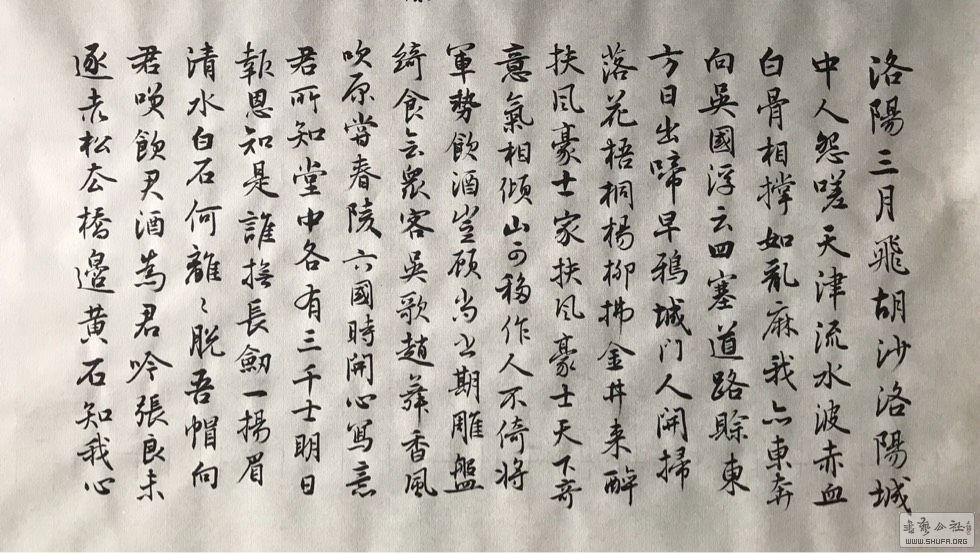 洛陽三月飛胡沙洛陽城
中人怨嗟天津流水波赤血
白骨相撐如亂麻我亦東奔
向吳國浮云四塞道路賒東
方日出啼早鴉城门人開掃
落花梧桐楊柳拂金井来醉
扶风豪士家扶风豪士天下奇
意氣相傾山可移作人不倚將
軍勢飲酒豈顾尚书期雕盤
綺食会眾客吳歌趙舞香風
吹原嘗春陵六國時開心寫意
君所知堂中各有三千士明日
報恩知是誰撫長劒一揚眉
清水白石何離〻脱吾帽向
君笑飲君酒為君吟張良未
逐赤松去橋邊黄石知我心
書藝公社
WWW.SHUFA.ORG